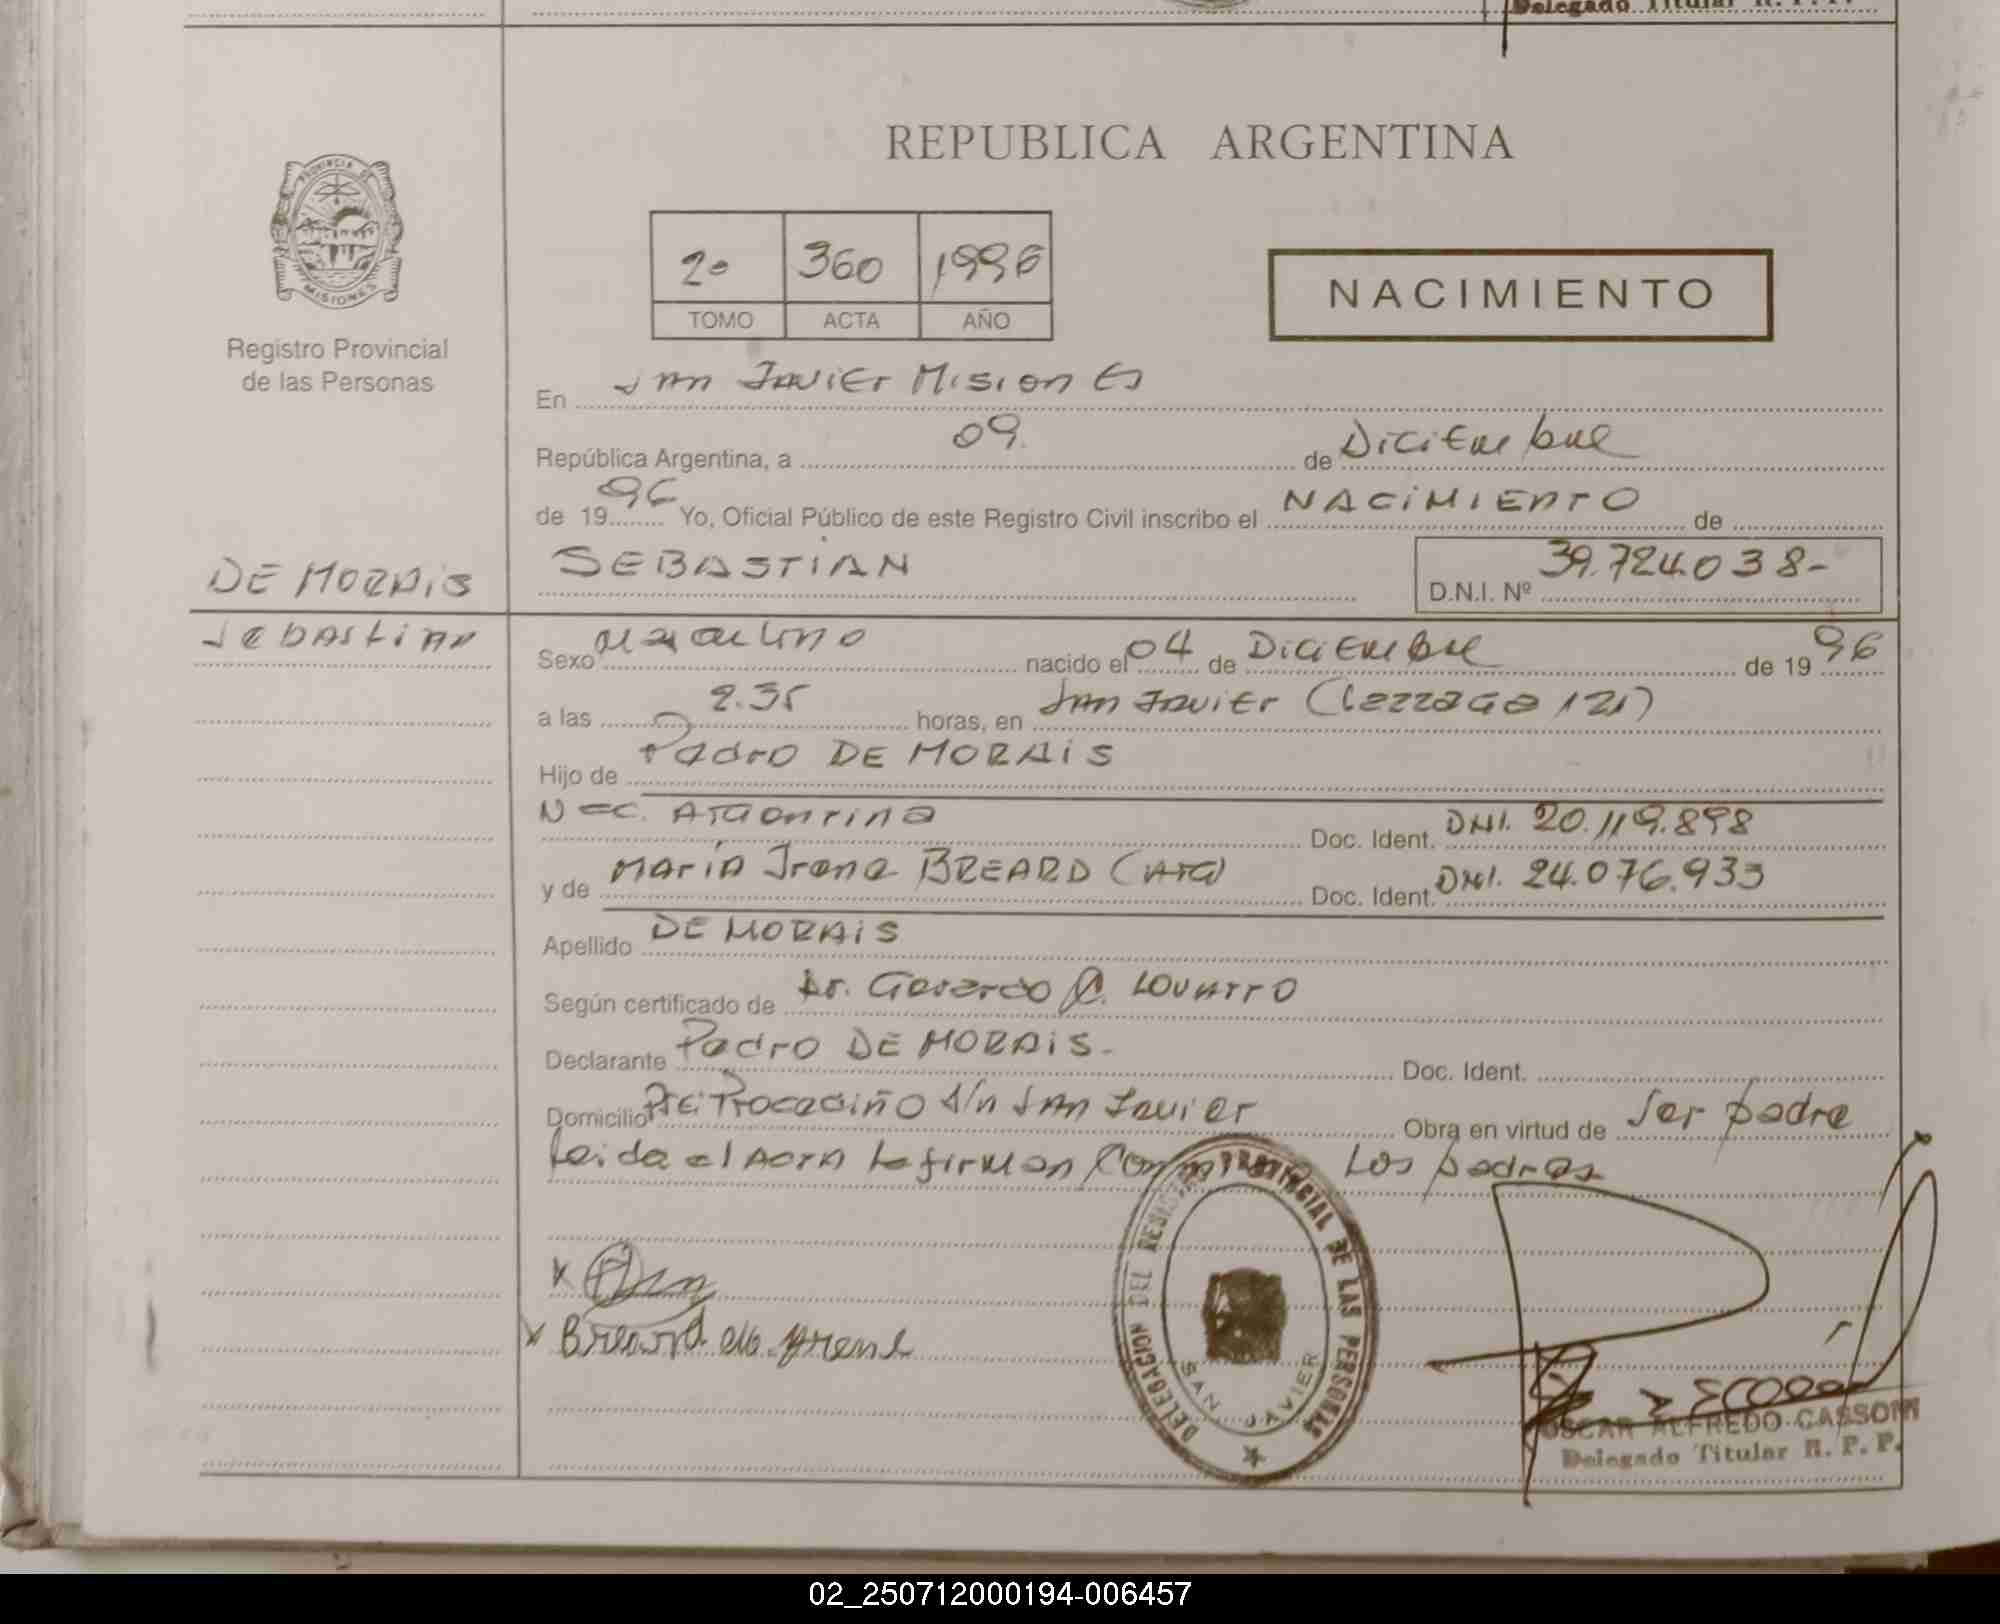 Delegado Titular R. P. P.
REPUBLICA ARGENTINA
PROVINCIA DE MISIONES
Registro Provincial
de las Personas
2º 360 1996
TOMO ACTA AÑO
NACIMIENTO
En San Javier Misiones
República Argentina, a 09. de Diciembre
de 1996 Yo, Oficial Público de este Registro Civil inscribo el NACIMIENTO de
DE MORAIS
Sebastian
SEBASTIAN D.N.I. Nº 39.724.038-
Sexo masculino nacido el 04 de Diciembre de 1996
a las 2.35 horas, en San Javier ( 121)
Hijo de Pedro DE MORAIS
Nac. Argentina Doc. Ident. DNI. 20.119.898
y de María Irene BREARD (Arg) Doc. Ident. DNI. 24.076.933
Apellido DE MORAIS
Según certificado de Dr. Gerardo C. Lovatto
Declarante Pedro DE MORAIS. Doc. Ident.
Domicilio s/n San Javier Obra en virtud de Ser padre
Leida el Acta la firman Conmigo Los padres
Breard Ma. Irene
DELEGACION DEL REGISTRO PROVINCIAL DE LAS PERSONAS
SAN JAVIER
OSCAR ALFREDO CASSONI
Delegado Titular R. P. P.
02_250712000194-006457